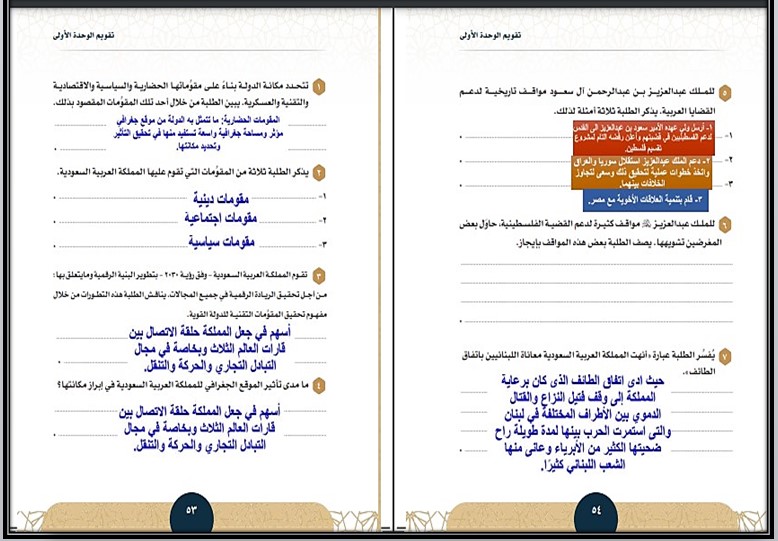 تقويم الوحدة الأولى
١ تتحدد مكانة الدولة بناءً على مقوّماتها الحضارية والسياسية والاقتصادية
والتقنية والعسكرية. يبين الطلبة من خلال أحد تلك المقوّمات المقصود بذلك.
المقومات الحضارية: ما تتمثل به الدولة من موقع جغرافي
مؤثر ومساحة جغرافية واسعة تستفيد منها في تحقيق التأثير
وتحديد مكانتها.
٢ يذكر الطلبة ثلاثة من المقوّمات التي تقوم عليها المملكة العربية السعودية.
١- مقومات دينية
٢- مقومات اجتماعية
٣- مقومات سياسية
٣ تقوم المملكة العربية السعودية - وفق رؤية ٢٠٣٠ - بتطوير البنية الرقمية ومايتعلق بها؛
من أجل تحقيق الريادة الرقمية في جميع المجالات. يناقش الطلبة هذه التطورات من خلال
مفهوم تحقيق المقوّمات التقنية للدولة القوية.
أسهم في جعل المملكة حلقة الاتصال بين
قارات العالم الثلاث وبخاصة في مجال
التبادل التجاري والحركة والتنقل.
٤ ما مدى تأثير الموقع الجغرافي للمملكة العربية السعودية في إبراز مكانتها؟
أسهم في جعل المملكة حلقة الاتصال بين
قارات العالم الثلاث وبخاصة في مجال
التبادل التجاري والحركة والتنقل.
٥٣
تقويم الوحدة الأولى
٥ للملك عبدالعزيز بن عبدالرحمن آل سعود مواقف تاريخية لدعم
القضايا العربية. يذكر الطلبة ثلاثة أمثلة لذلك.
١- أرسل ولي عهده الأمير سعود بن عبدالعزيز الى القدس
لدعم الفلسطينيين في قضيتهم وأعلن رفضه التام لمشروع
تقسيم فلسطين.
٢- دعم الملك عبدالعزيز استقلال سوريا والعراق
واتخذ خطوات عملية لتحقيق ذلك وسعى لتجاوز
الخلافات بينهما.
٣- قام بتنمية العلاقات الأخوية مع مصر.
١-
٢-
٣-
٦ للملك عبدالعزيز مواقف كثيرة لدعم القضية الفلسطينية، حاوَل بعض
المغرضين تشويهها. يصف الطلبة بعض هذه المواقف بإيجاز.
٧ يُفسّر الطلبة عبارة «أنهت المملكة العربية السعودية معاناة اللبنانيين باتفاق
الطائف».
حيث ادى اتفاق الطائف الذى كان برعاية
المملكة إلى وقف فتيل النزاع والقتال
الدموي بين الأطراف المختلفة في لبنان
والتى استمرت الحرب بينها لمدة طويلة راح
ضحيتها الكثير من الأبرياء وعانى منها
الشعب اللبناني كثيرًا.
٥٤